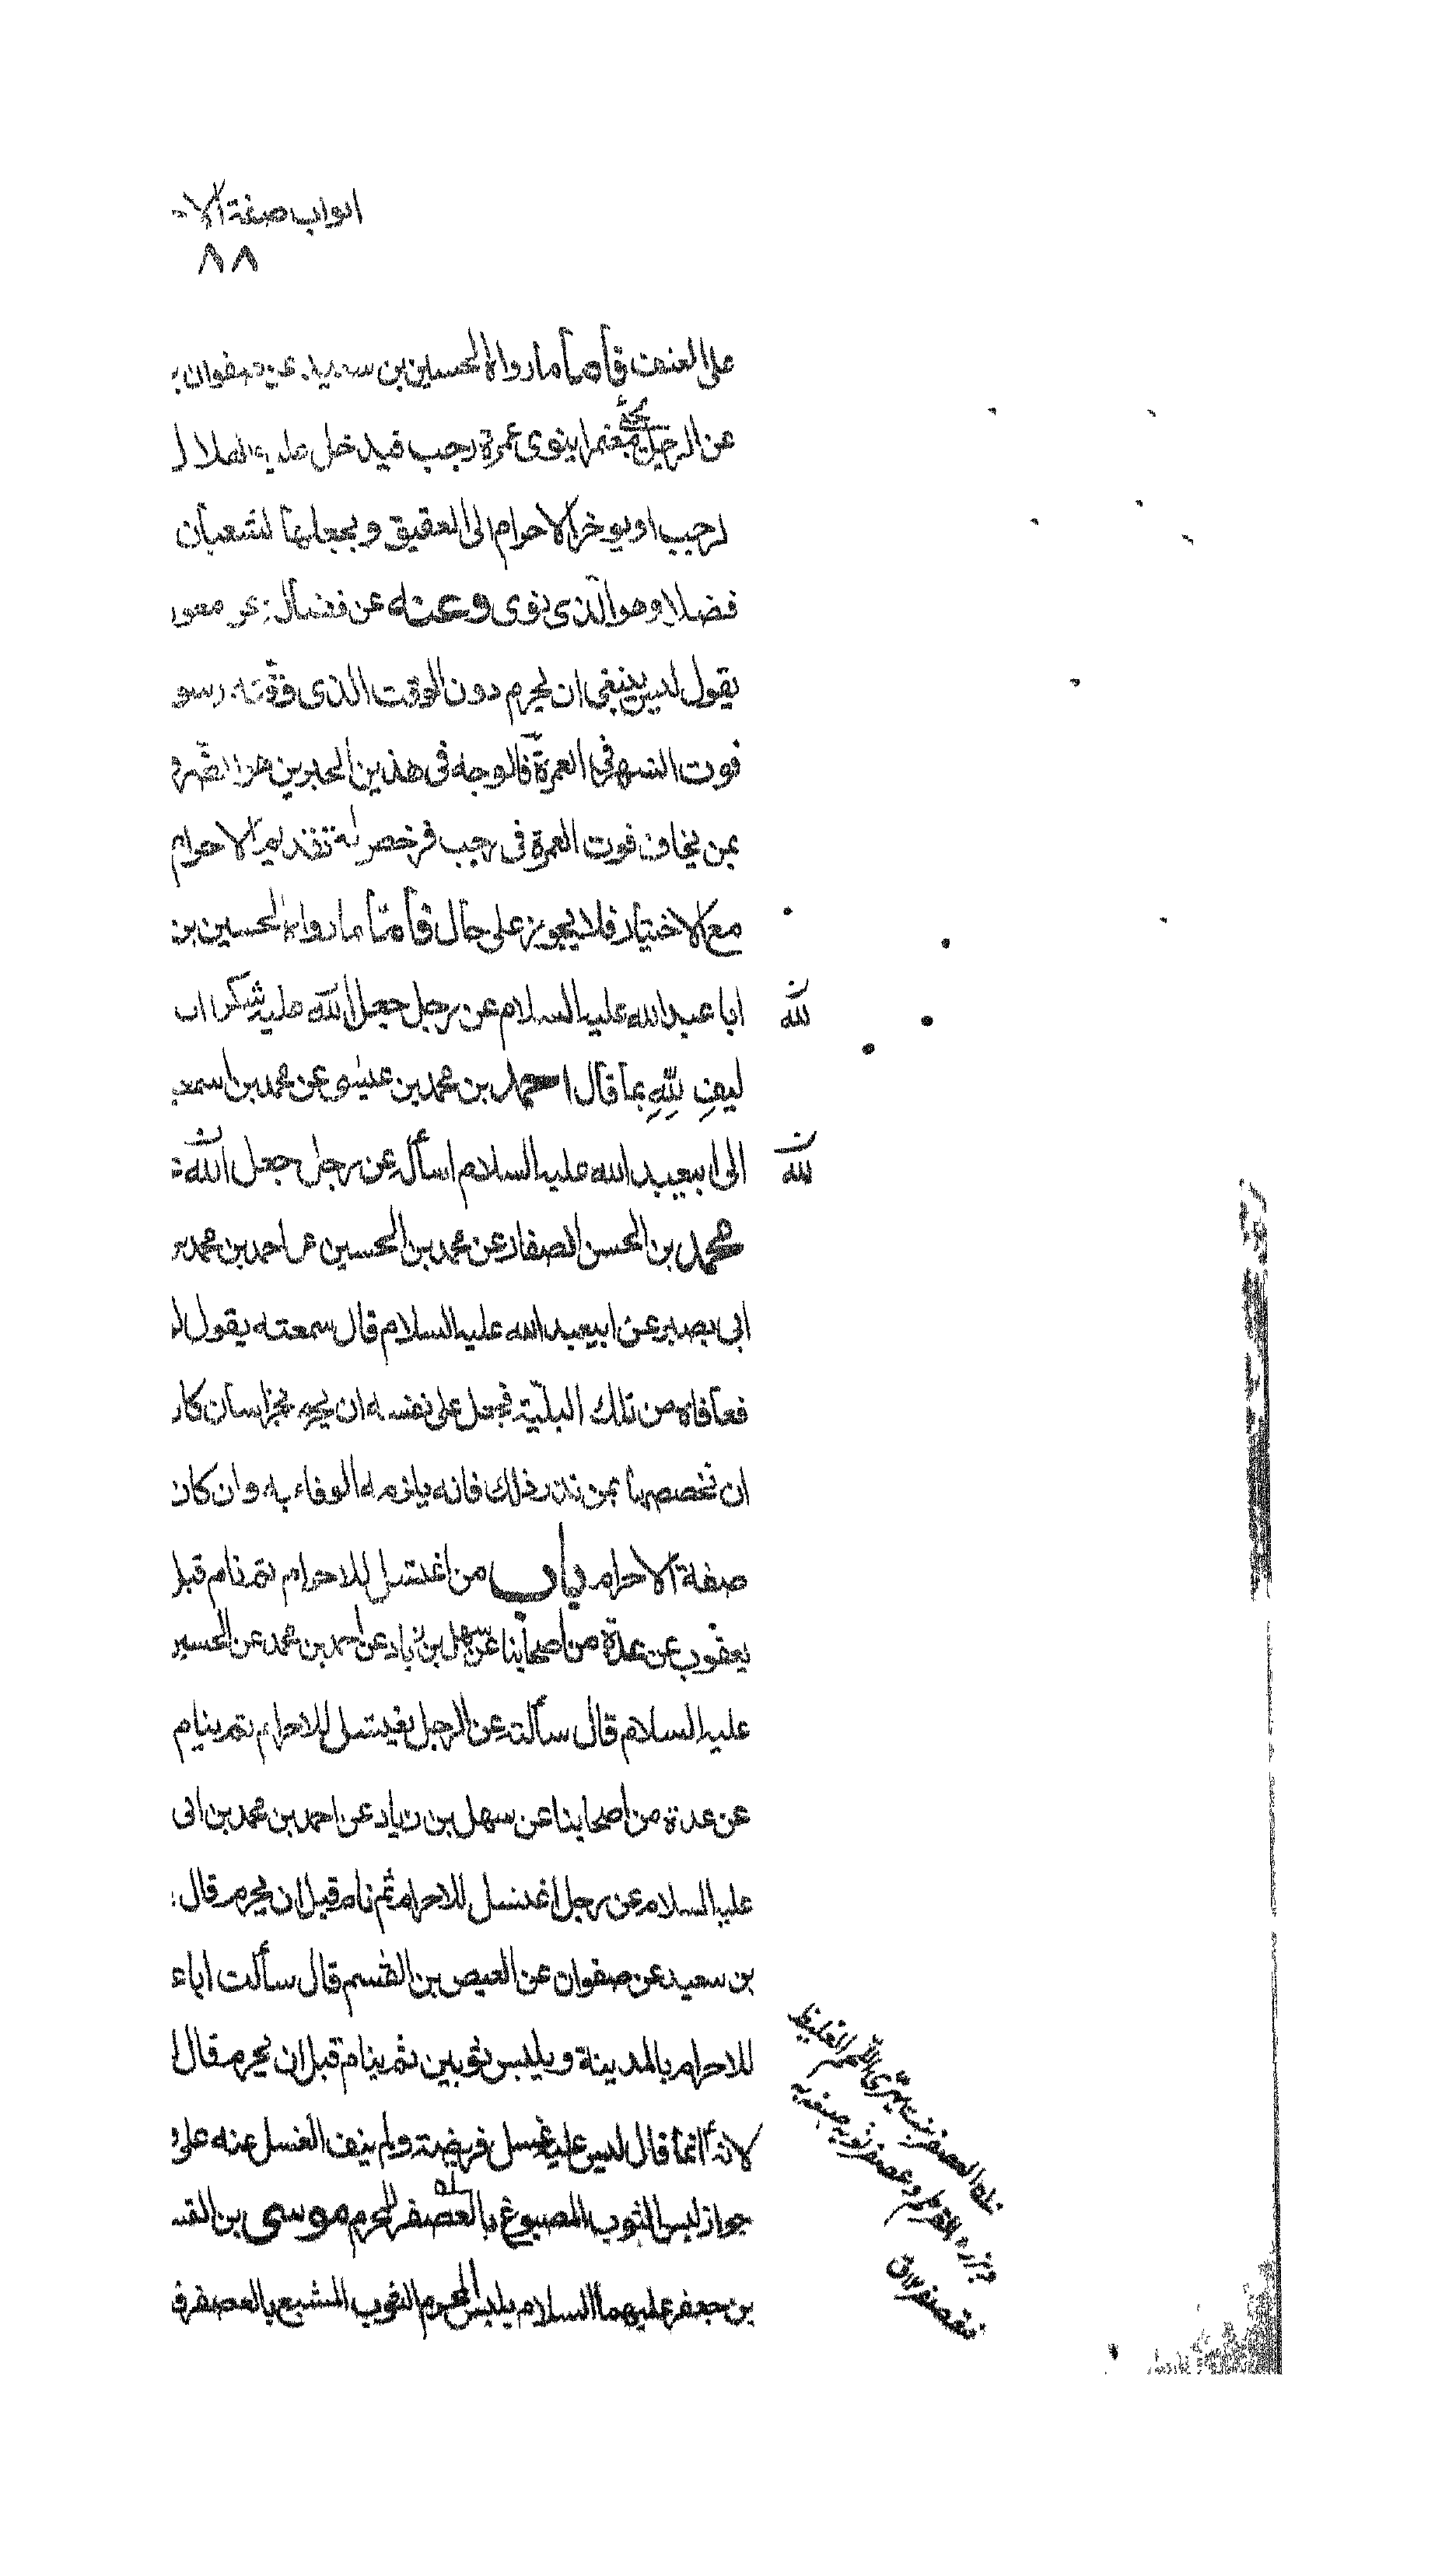 ابواب صفة الا
٨٨
على العنف فأما ما رواه الحسين بن سعيد عن صفوان
عن الرجل يجئ معتمرا ينوى عمرة رجب فيدخل عليه الهلال
لرجب او يوخر الاحرام الى العقيق ويجعلها لشعبان
فضلا وهو الذى نوى وعنه عن فضالة عن معو
يقول ليس ينبغى ان يحرم دون الوقت الذى وقته رسو
فوت الشهر فى العمرة فالوجه فى هذين الخبرين
بمن يخاف فوت العمرة فى رجب فرخص له تقديم الاحرام
مع الاختيار فلا يجوز على حال فأما ما رواه الحسين بن
ابا عبد الله عليه السلام عن رجل جعل الله عليه شكرا ان
لله
ليف لله بما قال احمد بن محمد بن عيسى عن محمد بن اسمعي
الى ابيعبد الله عليه السلام اسأله عن رجل جعل الله
لله
محمد بن الحسن الصفار عن محمد بن الحسين عن احمد بن محمد
ابى بصير عن ابيعبد الله عليه السلام قال سمعته يقول
فعافاه من تلك البلية فجعل على نفسه ان يحرم بخراسان كان
ان نخصصها بمن نذر ذلك فانه يلزمه الوفاء به وان كان
صفة الاحرام باب من اغتسل للاحرام ثم نام قبل
يعقوب عن عدة من اصحابنا عن سهل بن زياد عن احمد بن محمد عن الحسين
عليه السلام قال سألته عن الرجل يغتسل للاحرام ثم ينام
عن عدة من اصحابنا عن سهل بن زياد عن احمد بن محمد بن ابى
عليه السلام عن رجل اغتسل للاحرام ثم نام قبل ان يحرم قال
بن سعيد عن صفوان عن العيص بن القسم قال سألت ابا ع
للاحرام بالمدينة ويلبس ثوبين ثم ينام قبل ان يحرم قال
لانه انما قال ليس عليه غسل فريضة ولم ينف الغسل عنه على
جواز لبس الثوب المصبوغ بالعصفر للمحرم موسى بن القس
بن جعفر عليهما السلام يلبس المحرم الثوب المشبع بالعصفر ف
العصفر نبت يهرى اللحم الغليظ
القرطم وعصفر ثوبه صبغه به